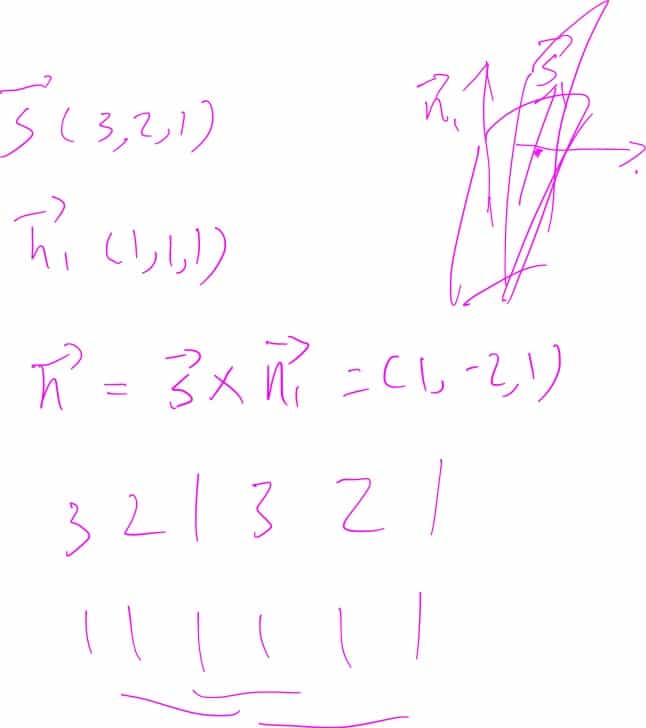 s⃗ (3,2,1)
n⃗₁ (1,1,1)
n⃗ = s⃗ × n⃗₁ = (1,-2,1)
3 2 1 3 2 1
1 1 1 1 1 1
n⃗₁
s⃗